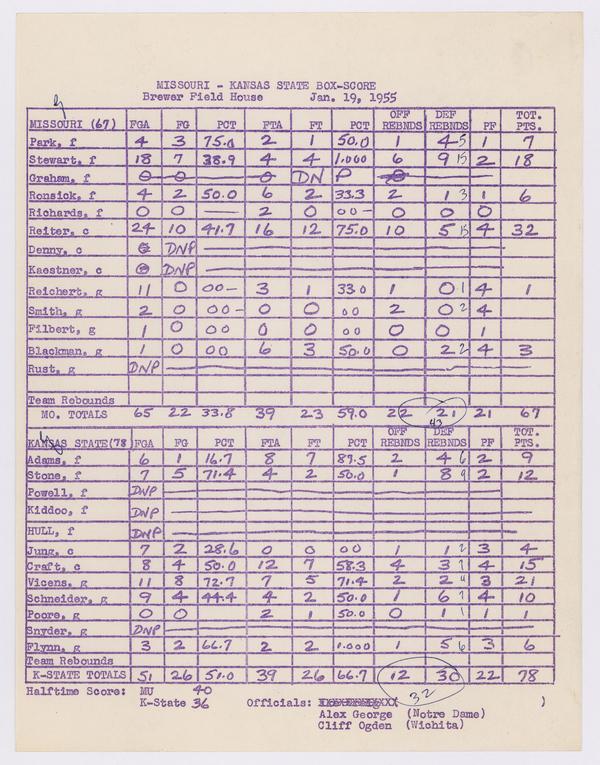 MISSOURI - KANSAS STATE BOX-SCORE
Brewer Field House Jan. 19, 1955
MISSOURI (67) FGA FG PCT FTA FT PCT OFF REBNDS DEF REBNDS PF TOT. PTS.
Park, f 4 3 75.0 2 1 50.0 1 4 5 1 7
Stewart, f 18 7 38.9 4 4 1.000 6 9 15 2 18
Graham, f 0 0 0 DNP
Ronsick, f 4 2 50.0 6 2 33.3 2 1 3 1 6
Richards, f 0 0 — 2 0 00- 0 0 0
Reiter, c 24 10 41.7 16 12 75.0 10 5 15 4 32
Denny, c DNP
Kaestner, c DNP
Reichert, g 11 0 00- 3 1 33.0 1 0 1 4 1
Smith, g 2 0 00- 0 0 00 2 0 2 4
Filbert, g 1 0 00 0 0 00 0 0 1
Blackman, g 1 0 00 6 3 50.0 0 2 2 4 3
Rust, g DNP
Team Rebounds
MO. TOTALS 65 22 33.8 39 23 59.0 22 21 21 67
43
KANSAS STATE(78 FGA FG PCT FTA FT PCT OFF REBNDS DEF REBNDS PF TOT. PTS.
Adams, f 6 1 16.7 8 7 87.5 2 4 6 2 9
Stone, f 7 5 71.4 4 2 50.0 1 8 9 2 12
Powell, f DNP
Kiddoo, f DNP
HULL, f DNP
Jung, c 7 2 28.6 0 0 00 1 1 2 3 4
Craft, c 8 4 50.0 12 7 58.3 4 3 7 4 15
Vicens, g 11 8 72.7 7 5 71.4 2 2 4 3 21
Schneider, g 9 4 44.4 4 2 50.0 1 6 7 4 10
Poore, g 0 0 2 1 50.0 0 1 1 1 1
Snyder, g DNP
Flynn, g 3 2 66.7 2 2 1.000 1 5 6 3 6
Team Rebounds
K-STATE TOTALS 51 26 51.0 39 26 66.7 12 30 22 78
32
Halftime Score: MU 40
K-State 36 Officials: )
Alex George (Notre Dame)
Cliff Ogden (Wichita)